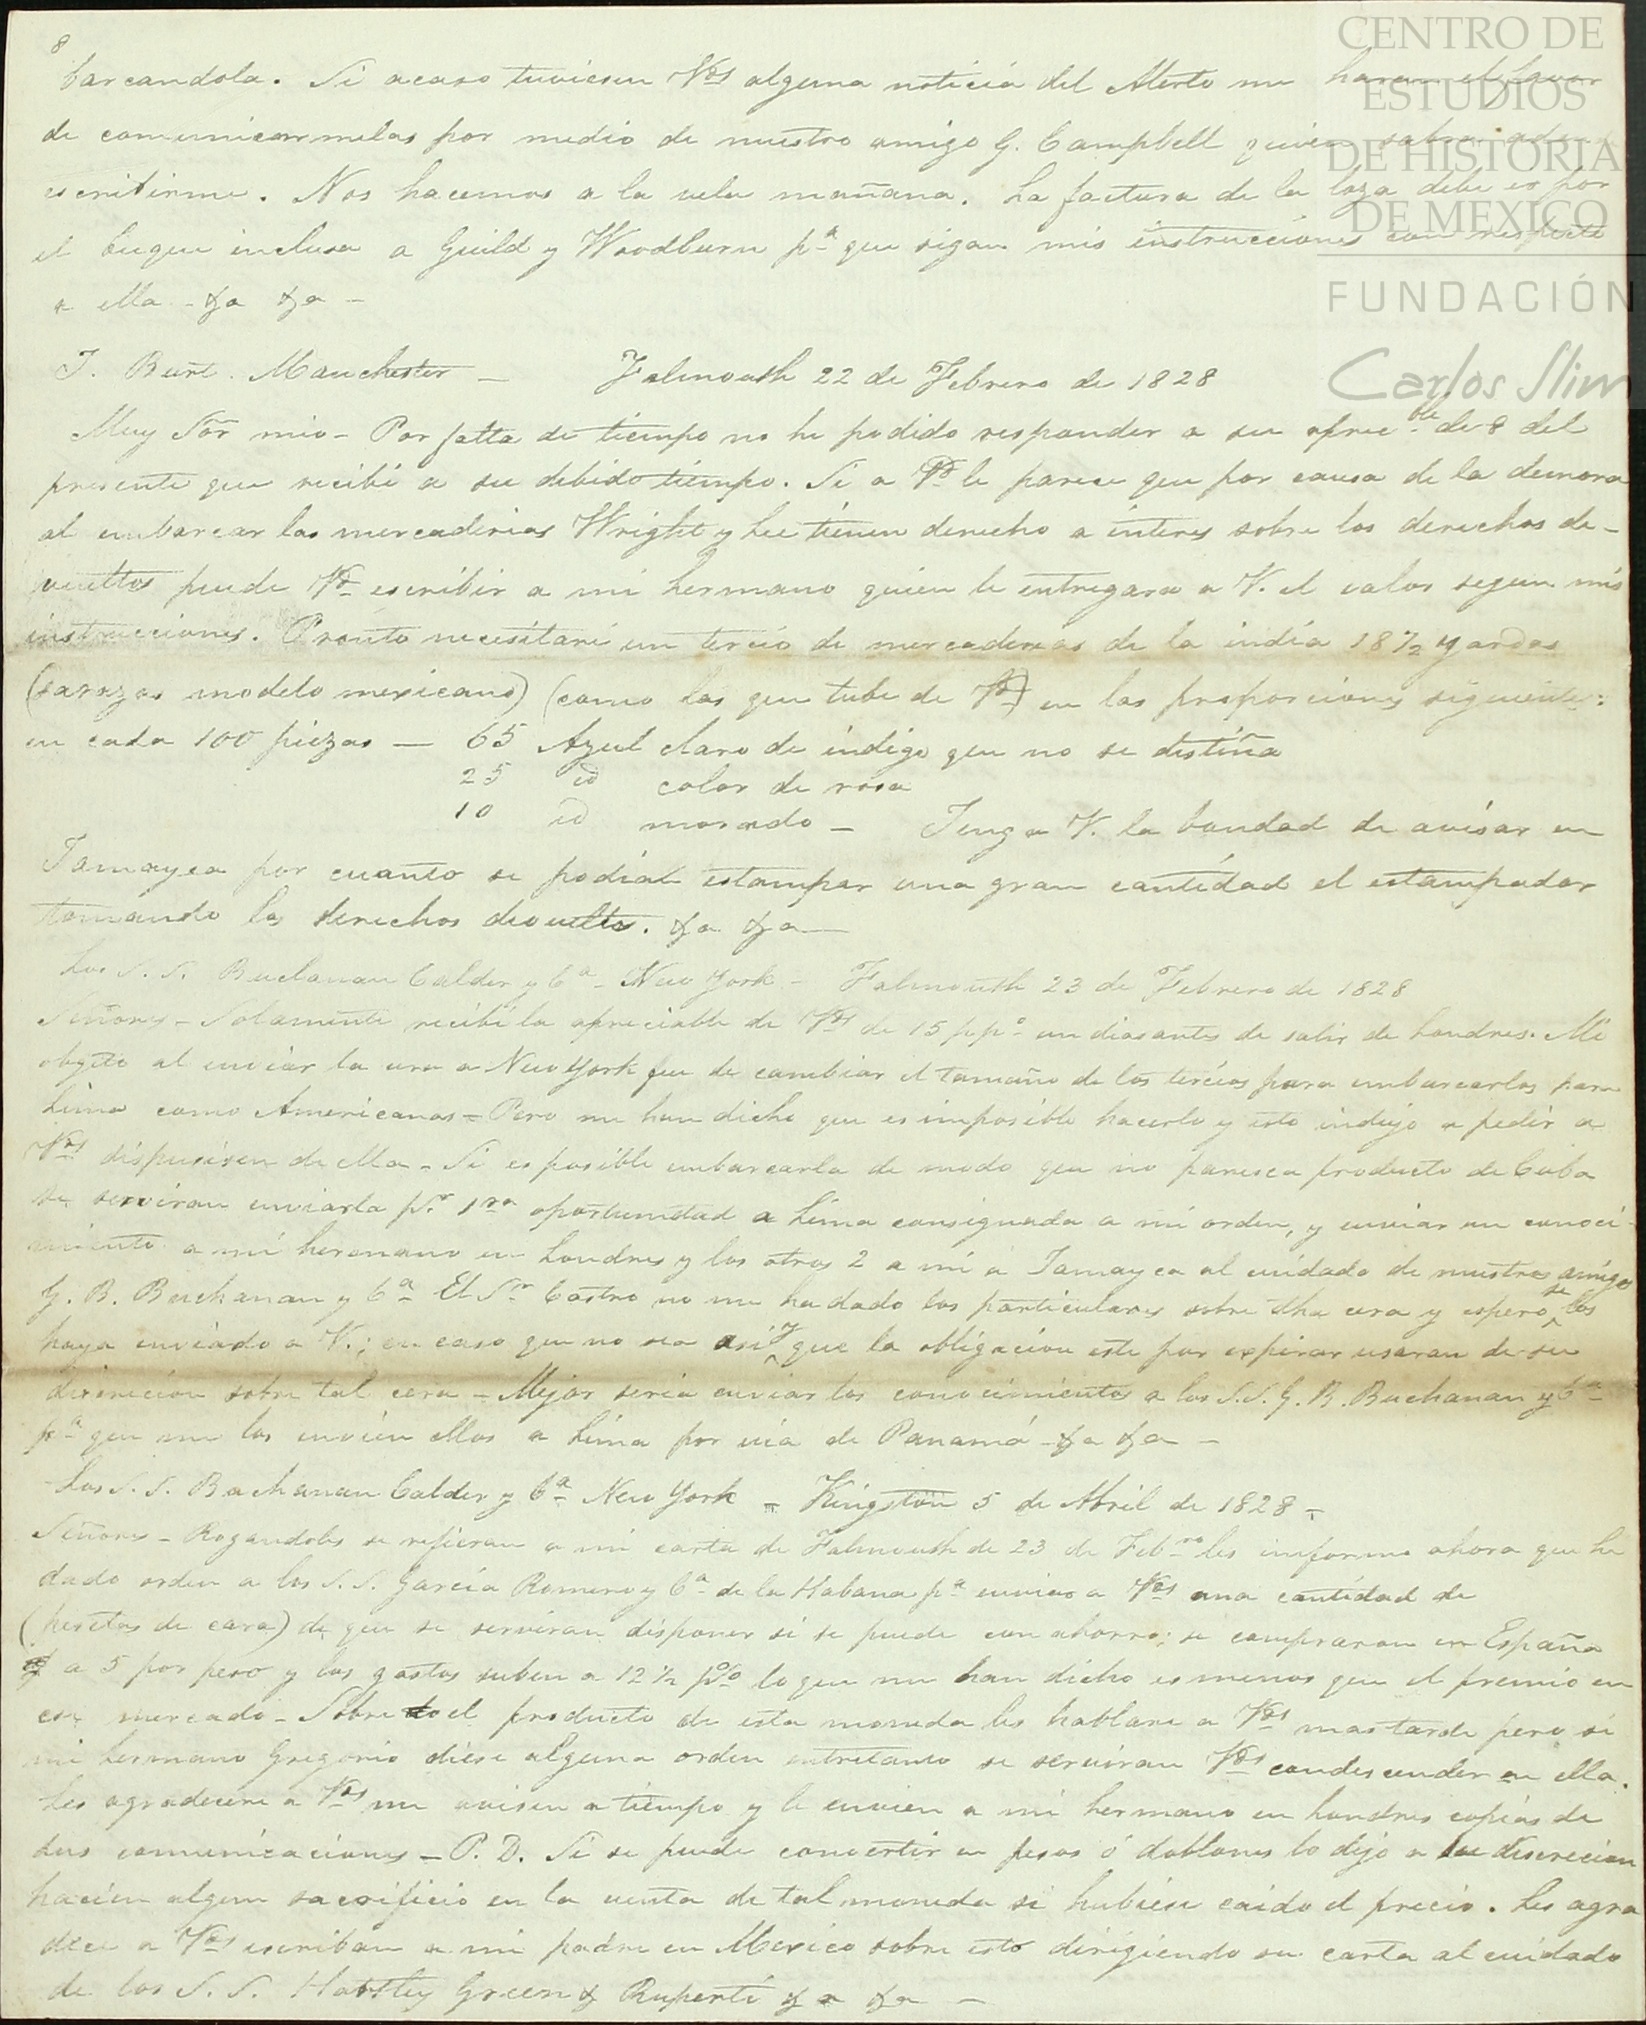 8
barcandola. Si acaso tuviesen Vds alguna noticia del Merto me haran el favor
de comunicarmelas por medio de nuestro amigo G. Campbell quien sabra
escribirme. Nos hacemos a la vela mañana. La factura de la loza debe ir por
el buque inclusa a Guild y Woodburn pa que sigan mis instrucciones con respecto
a ella - &a &a -
J. Burt. Manchester - Falmouth 22 de Febrero de 1828
Muy Sōr mio - Por falta de tiempo no he podido responder a su aprecble de 8 del
presente que recibi a su debido tiempo. Si a Vd le parece que por causa de la demora
al embarcar las mercaderias Wright y Lee tienen derecho a interes sobre los derechos de-
vueltos puede Vd escribir a mi hermano quien le entregara a V. el valor segun mis
instrucciones. Pronto necesitaré un tercio de mercaderias de la india 18 1/2 yardas
(sarazas modelo mexicano) (como las que tube de Vd) en las proporciones siguientes:
en cada 100 piezas — 65 Azul claro de indigo que no se destiña
25 id color de rosa
10 id morado - Tenga V. la bondad de avisar en
Jamayca por cuanto se podiah estampar una gran cantidad el estampador
tomando los derechos devueltos. &a &a —
Los S.S. Buchanan Calder y Ca - New York - Falmouth 23 de Febrero de 1828
Señores - Solamente recibi la apreciable de Vds de 15 ppo un dia antes de salir de Londres. Mi
obgeto al enviar la cera a New York fue de cambiar el tamaño de los tercios para embarcarlos para
Lima como Americanas - Pero me han dicho que es imposible hacerlo y esto indujo a pedir a
Vds dispusiesen de ella - Si es posible embarcarla de modo que no paresca producto de Cuba
se serviran enviarla pr 1ra oportunidad a Lima consignada a mi orden, y enviar un conoci-
miento a mi hermano en Londres y los otros 2 a mi a Jamayca al cuidado de nuestros amigos
G. B. Buchanan y Ca El Sr Castro no me ha dado los particulares sobre dha cera y espero se los
haya enviado a V.; en caso que no sea asi y que la obligacion este por expirar usaran de su
discrecion sobre tal cera - Mejor seria enviar los conocimientos a los S.S. G. B. Buchanan y Ca
pa que me los envien ellos a Lima por via de Panamá - &a &a -
Los S.S. Buchanan Calder y Ca New York - Kingston 5 de Abril de 1828 -
Señores - Rogandoles se refieran a mi carta de Falmouth de 23 de Febro les informo ahora que he
dado orden a los S.S. Garcia Romero y Ca de la Habana pa enviar a Vds una cantidad de
(pesetas de cara) de que se serviran disponer si se puede con ahorro; se compraron en España
a 5 por peso y los gastos suben a 12 1/2 p% lo que me han dicho es menos que el premio en
ese mercado - Sobre el producto de esta moneda les hablare a Vds mas tarde pero si
mi hermano Gregorio diese alguna orden entretanto se serviran Vds condescender en ella.
Les agradecere a Vds me avisen a tiempo y le envien a mi hermano en Londres copias de
sus comunicaciones - P.D. Si se puede convertir en pesos ó doblones lo dejo a su discrecion
hacien algun sacrificio en la venta de tal moneda si hubiese caido el precio. Les agra
dece a Vds escriban a mi padre en Mexico sobre esto dirigiendo su carta al cuidado
de los S.S. Hartley Green y Ruperti &a &a -
CENTRO DE
ESTUDIOS
DE HISTORIA
DE MEXICO
FUNDACIÓN
Carlos Slim